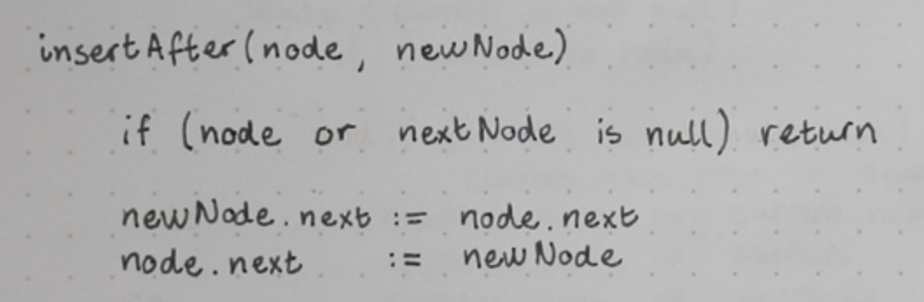 insertAfter(node, newNode)
if (node or nextNode is null) return
newNode.next := node.next
node.next := newNode